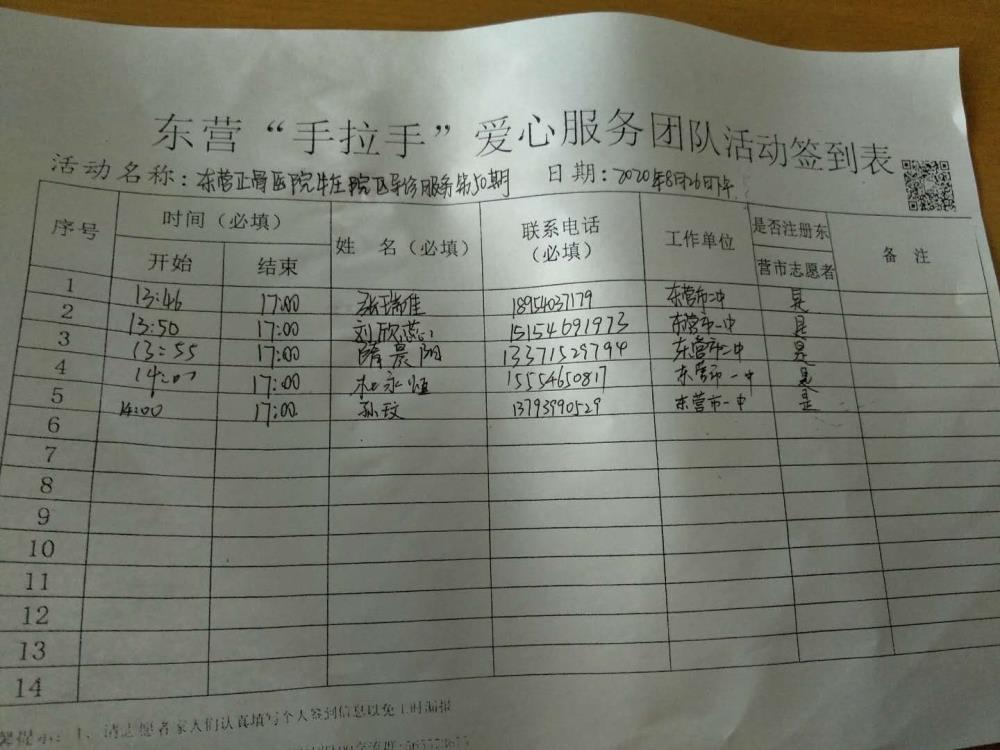 东营“手拉手”爱心服务团队活动签到表
活动名称：东营正骨医院牛庄院区导诊服务第50期 日期：2020年8月26日下午
序号 时间（必填） 姓 名（必填） 联系电话（必填） 工作单位 是否注册东营市志愿者 备 注
开始 结束
1 13:46 17:00 张瑞佳 18954037179 东营市二中 是
2 13:50 17:00 刘欣蕊 15154691973 东营市一中 是
3 13:55 17:00 隋晨阳 13371529794 东营市二中 是
4 14:00 17:00 杜永恒 15554650817 东营市一中 是
5 14:00 17:00 孙玟 13793990529 东营市一中 是
6
7
8
9
10
11
12
13
14
提示：1、请志愿者家人们认真填写个人签到信息以免工时漏报